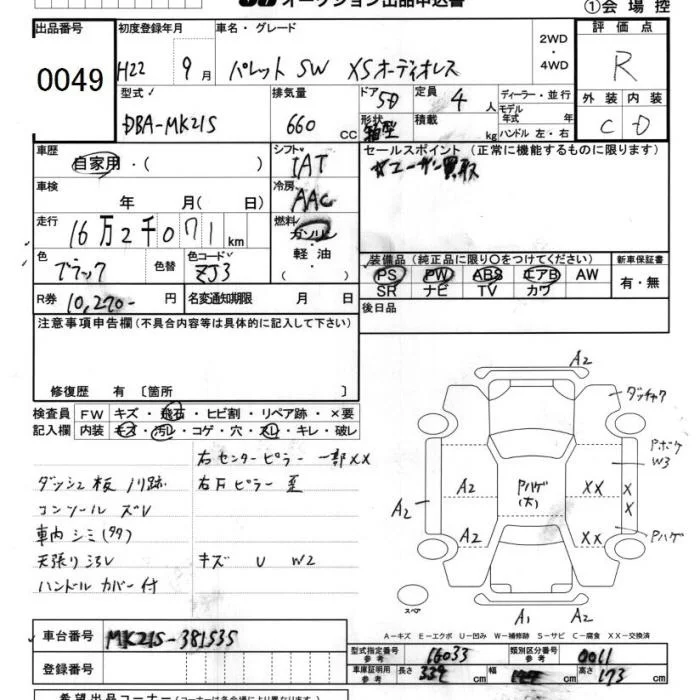 オークション出品申込書
①会場控
出品番号
0049
初度登録年月
H22 9月
車名・グレード
パレット SW XSオーディオレス
2WD・4WD
評価点
R
外装 内装
C D
型式
DBA-MK21S
排気量
660 CC
ドア 5D
形状 箱型
定員 4人
積載 kg
ディーラー・並行
モデル年式 年式
ハンドル 左・右
車歴
自家用・( )
シフト
IAT
セールスポイント (正常に機能するものに限ります)
☆ユーザー買取
車検
年 月( 日)
冷房
AAC
走行
16万2千071km
燃料
ガソリン・軽油
( )
色
ブラック
色替
色コード
ZJ3
装備品 (純正品に限り○をつけてください)
PS PW ABS エアB AW
SR ナビ TV カワ
新車保証書
有・無
R券 10,270- 円
名変通知期限 月 日
後日品
注意事項申告欄(不具合内容等は具体的に記入して下さい)
修復歴 有 〔箇所 〕
検査員記入欄
FW キズ・飛石・ヒビ割・リペア跡・×要
内装 キズ・汚レ・コゲ・穴・スレ・キレ・破レ
右センターピラー 一部XX
ダッシュ板 ノリ跡 右Fピラー
コンソール ズレ
車内 シミ(タタ)
天張り キズ U W2
ハンドル カバー付
A2
ダッチャク
Pボケ
W3
A2
A2
Pハゲ
(大)
XX
X
X
A2
XX
Pハゲ
スペア
A1 A2
A-キズ E-エクボ U-凹み W-補修跡 S-サビ C-腐食 XX-交換済
車台番号 MK21S-381535
型式指定番号 参考 16033
類別区分番号 参考 0011
登録番号
車庫証明用 参考 長さ 339 幅 高さ 173
希望出品コーナー